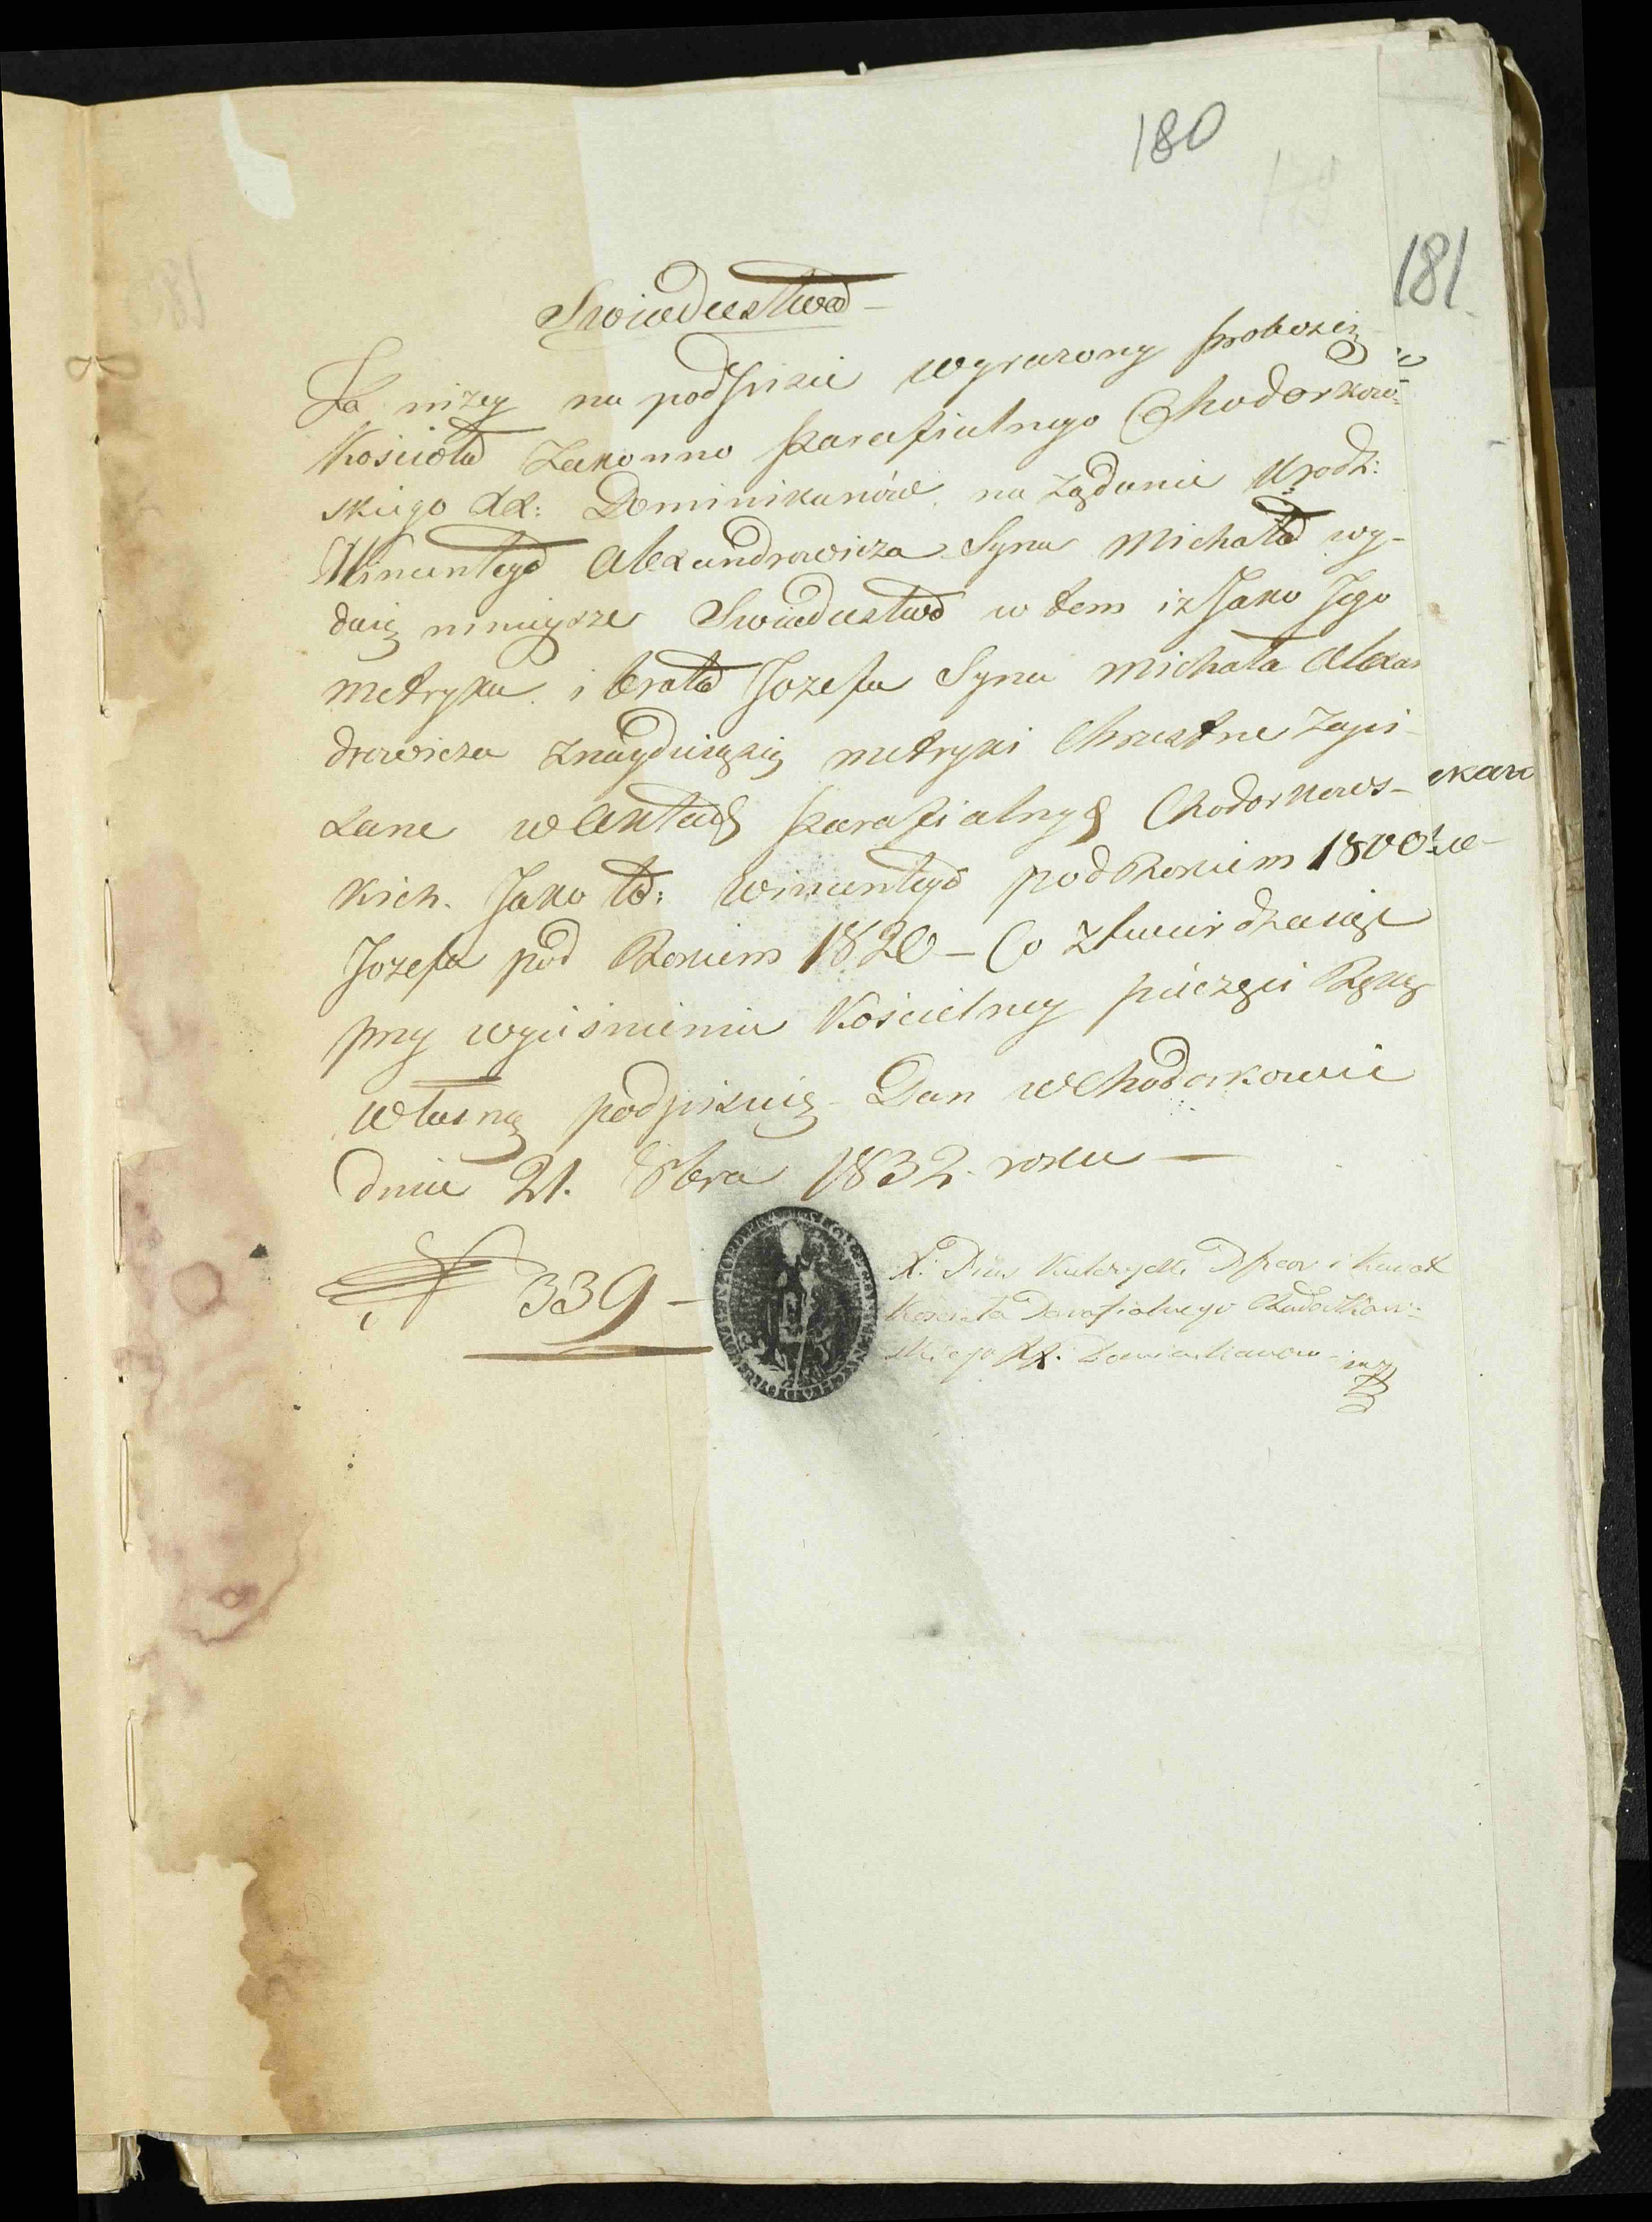 180
181
Swiadectwo
Ja niżey na podpisie wyrazony proboszcz
Kościoła Zakonno parafialnego Chodorkow-
skiego XX: Dominikanów na żądanie Urodz:
Wincentego Alexandrowicza Syna Michała wy-
daię ninieysze Swiadectwo w tem iż Jako Jego
metryka i brata Jozefa Syna Michała Alexan
drowicza znayduią się metryki Chrzestne zapi-
sane w Aktach parafialnych Chodorkows-
kich. Jako to: Wincentego pod Rokiem 1800
Jozefa pod Rokiem 1820 – Co ztwierdzaiąc
przy wyciśnieniu Kościelney pieczęci Ręką
własną podpisuię – Dan w Chodorkowie
dnia 21. 8bra 1832 roku –
N 339 –
X. Pius Przeor i Kurat
Koscioła Parafialnego Chodorkow-
skiego XX. Dominikanow mp